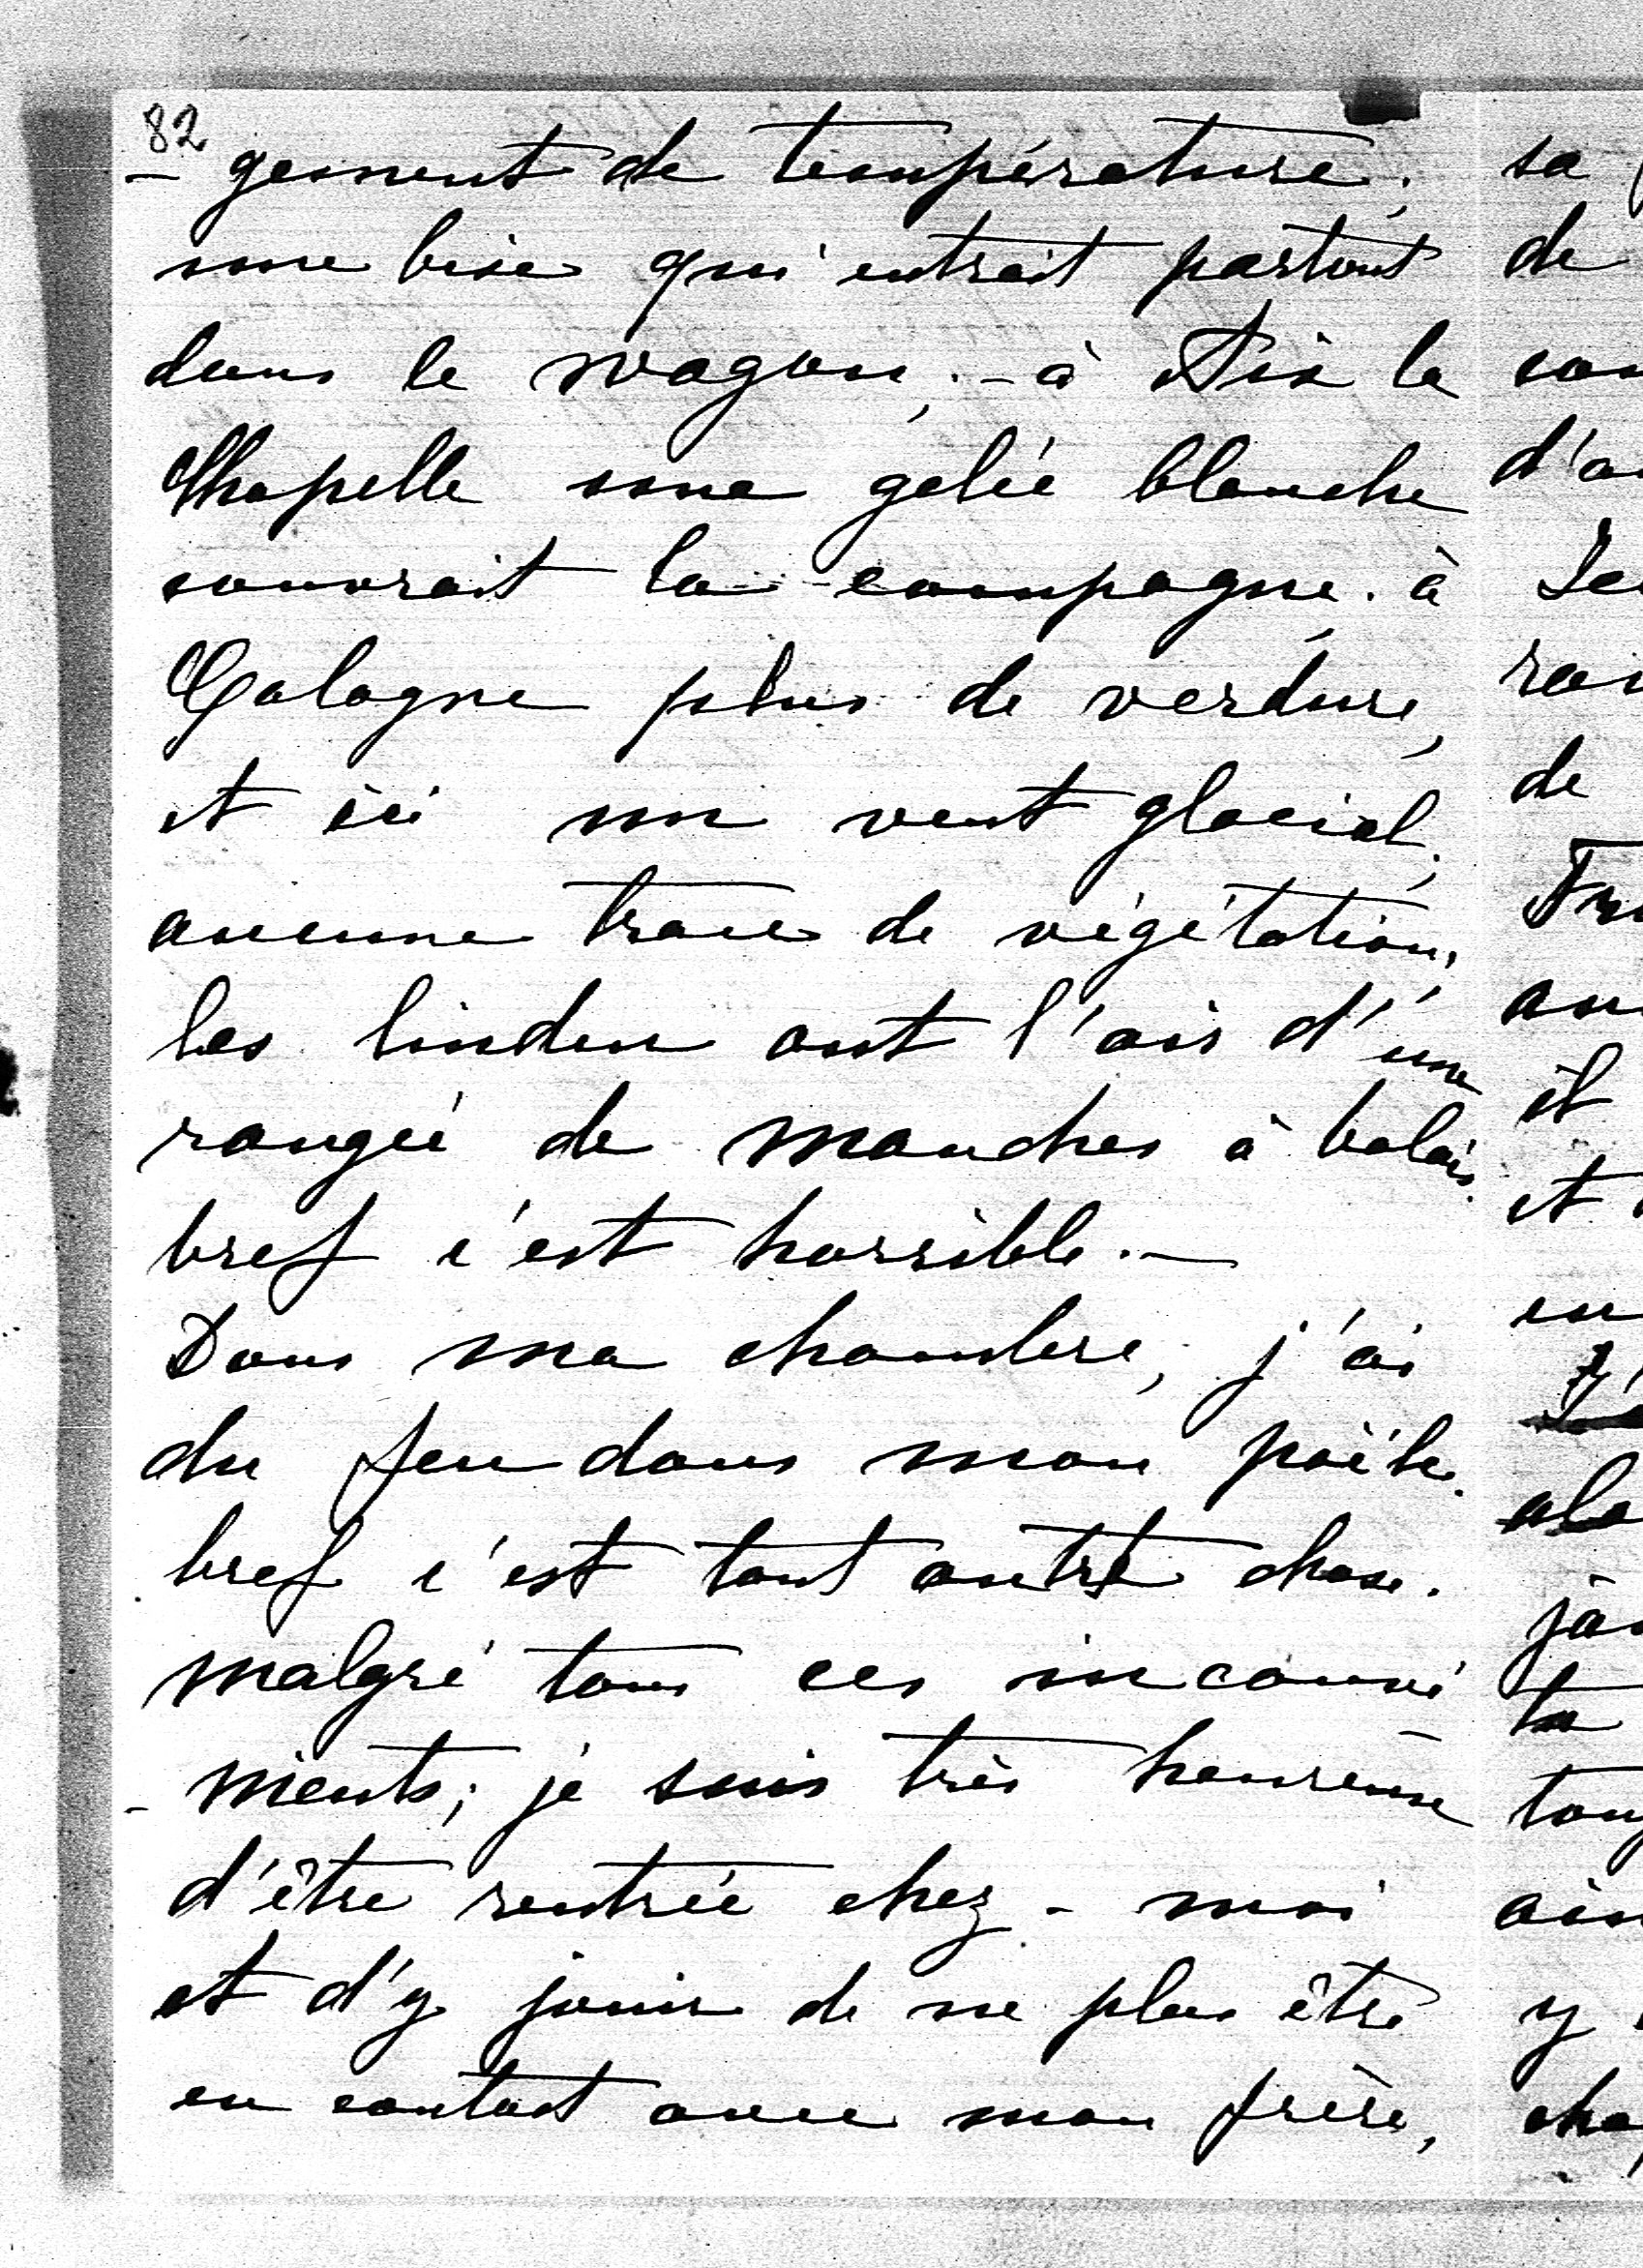 82
- gement de température;
une bise qui entrait partout
dans le wagon; - à Aix la
Chapelle une gelée blanche
couvrait la campagne; à
Cologne plus de verdure,
et ici un vent glacial;
aucune trace de végétation;
les linden ont l'air d'une
rangée de manches à balais.
bref c'est horrible. -
Dans ma chambre, j'ai
du feu dans mon poële.
bref c'est tout autre chose.
malgré tous ces inconvé
- nients; je suis très heureuse
d'être rentrée chez - moi
et d'y jouir de ne plus être
en contact avec mon frère,
sa
de
d'a
de
an
il
et
en
y